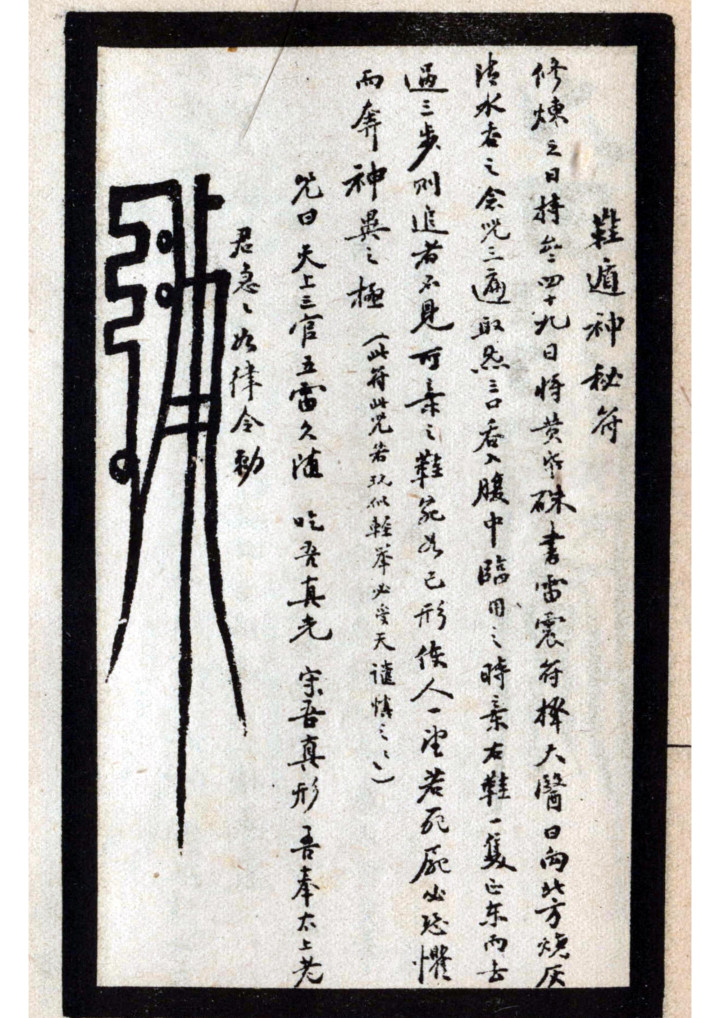 鞋遁神秘符
修煉之日持齋四十九日將黄紙硃書雷震符擇天醫日向北方燒灰
清水吞之念咒三遍取炁三口吞入腹中臨用之時棄右鞋一隻正东而去
過三步則追者不見所棄之鞋宛如己形使人一望若死屍必恐懼
而奔神異之極(此符此咒若玩似輕举必受天譴慎之〻)
咒曰 天上三官五雷久随 吃吾真光 宗吾真形 吾奉太上老
君急〻如律令勅